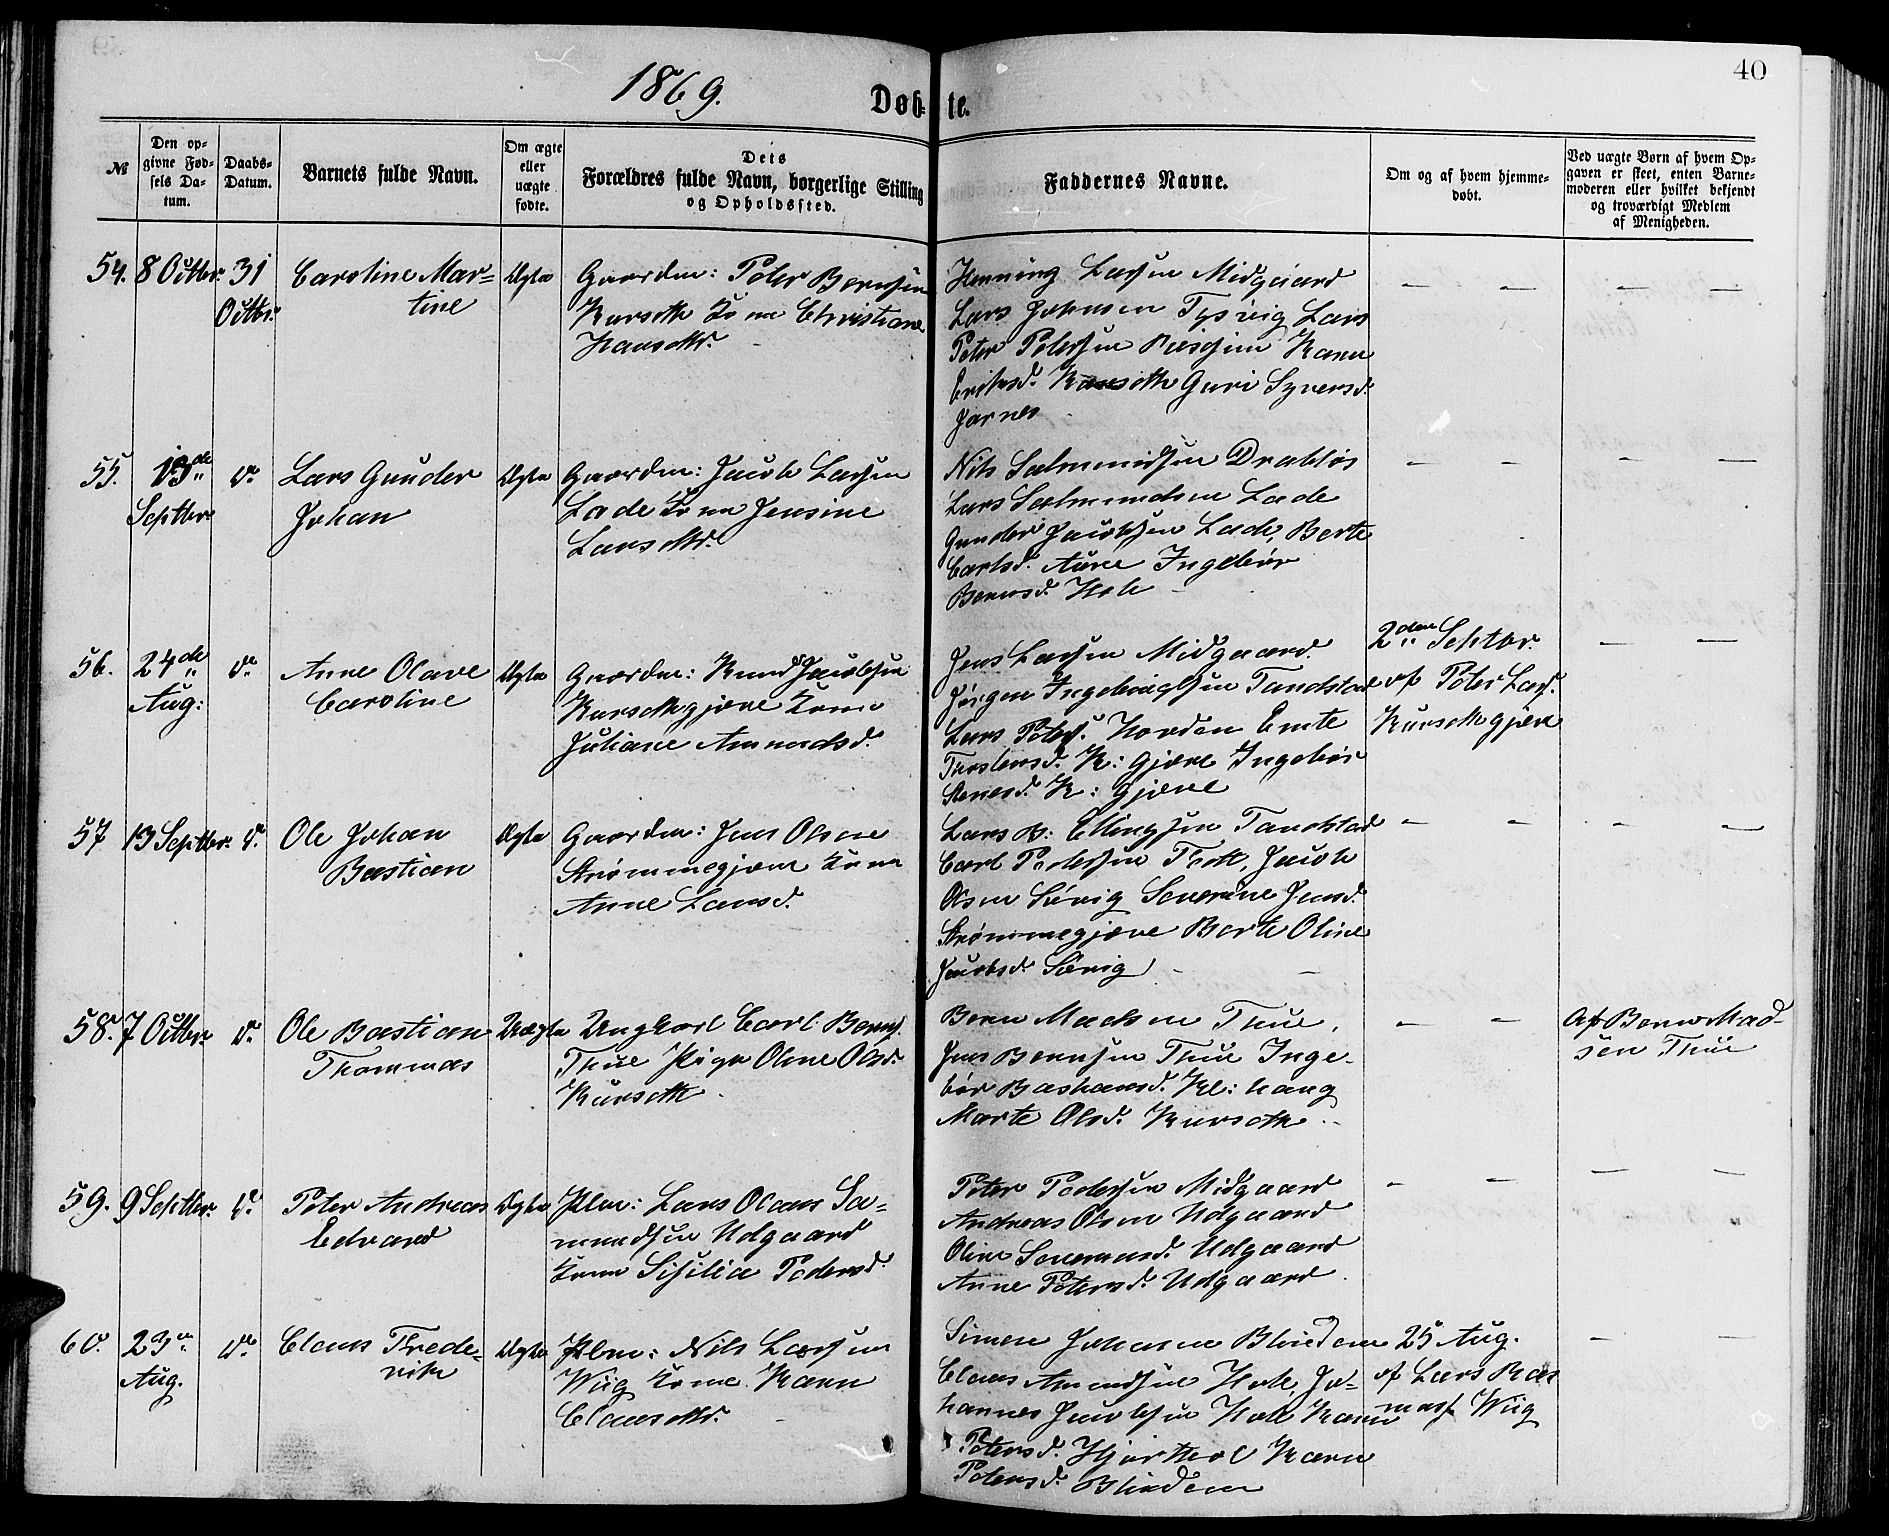 40
1869.
Døbte.
№
Den opgivne Fødsels Datum.
Daabs-Datum.
Barnets fulde Navn.
Om ægte eller uægte fødte.
Dets Forældres fulde Navn, borgerlige Stilling og Opholdssted.
Faddernes Navne.
Om og af hvem hjemmedøbt.
Ved uægte Børn af hvem Opgaven er skeet, enten Barnemoderen eller hvilket bekjendt og troværdigt Medlem af Menigheden.
54. 8 Octbr. 31 Octbr.
Caroline Mar=
tine
Ægte
Gaardm: Peter Bernsen
Kurseth Kone Christiane
Hansdtr.
Henning Larsen Midgaard
Lars Johnsen Tysvig Lars
Peter Petersen Karen
Eriksd. Kurseth Guri Syversd.
Jarnes
55. 13de Septbr. do
Lars Gunder
Johan
Ægte
Gaardm: Jacob Larsen
Lade Kone Jensine
Larsdtr.
Nils Salmundsen Drabløs
Lars Salmundsen Lade
Gunder Jacobsen Lade, Berte
Carlsd. Aure Ingebør
Bernsd. Hole
56. 24de Aug: do
Anne Olave
Caroline
Ægte
Gaardm: Knud Jacobsen
Kursethgjære Kone
Juliane Amundsd.
Jens Larsen Midgaard.
Jørgen Ingebrigtsen Tandstad
Lars Peters. Hovden Emte
Thostensd. K: gjære Ingebør
Stenesd. K: gjære
2den Septbr.
af Peter Lars.
Kursethgjære
57 13 Septbr. do
Ole Johan
Bastian
Ægte
Gaardm: Jens Olsen
Strømmegjære Kone
Anne Larsd.
Lars B: Ellingsen Tandstad
Carl Pedersen Tveth, Jacob
Olsen Søvig Severine Jensd.
Strømmegjære Berte Oline
Jacobsd. Søvig
58. 7 Octbr. do
Ole Bastian
Thommas
Uægte
Ungkarl Carl Berns.
Thue Pige Oline Olsd.
Kurseth
Bern Madsen Thue,
Jens Bernsen Thue Inge-
bør Bastiansd. Kl: haug
Marte Olsd. Kurseth
Af Bern Mad-
sen Thue
59. 9 Septbr. do
Peter Andreas
Edvard
Ægte
Plm: Lars Olaus Sa=
mundsen Udgaard
Kone Sisilia Pedersd.
Peter Pedersen Midgaard
Andreas Olsen Udgaard
Oline Severinsd. Udgaard
Anne Petersd. Udgaard
60. 23de Aug. do
Claus Frede=
rik
Ægte
Plm: Nils Larsen
Wiig Kone Karen
Clausdtr.
Simen Johansen Blindem
Claus Amundsen Hole, Jo=
hannes Jacobsen Hole Karen
Petersd. Hjorthol Karen
Petersd. Blindem
25 Aug.
af Lars Ras
mus. Wiig